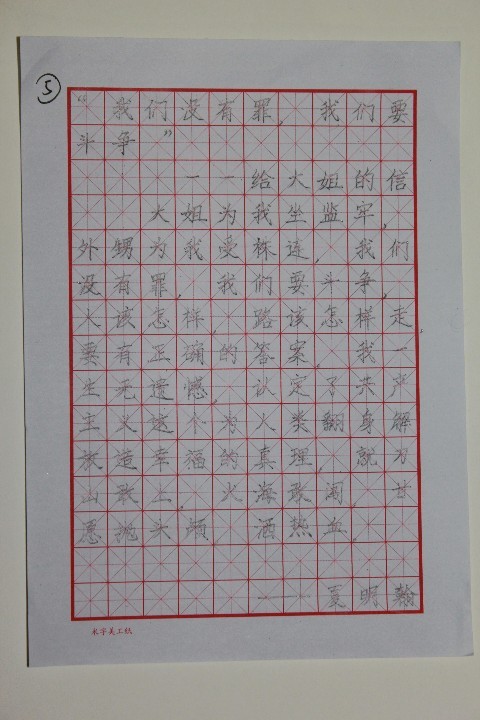 5
“我们没有罪，我们要
斗争”
——给大姐的信
大姐为我坐监牢，
外甥为我受株连，我们
没有罪，我们要斗争，
人该怎样，路该怎样走，
要有正确的答案，我一
生无遗憾，认定了共产
主义这个为人类翻身解
放造幸福的真理，就刀
山敢上，火海敢闯，甘
愿抛头颅，洒热血，
——夏明翰
米字美工纸